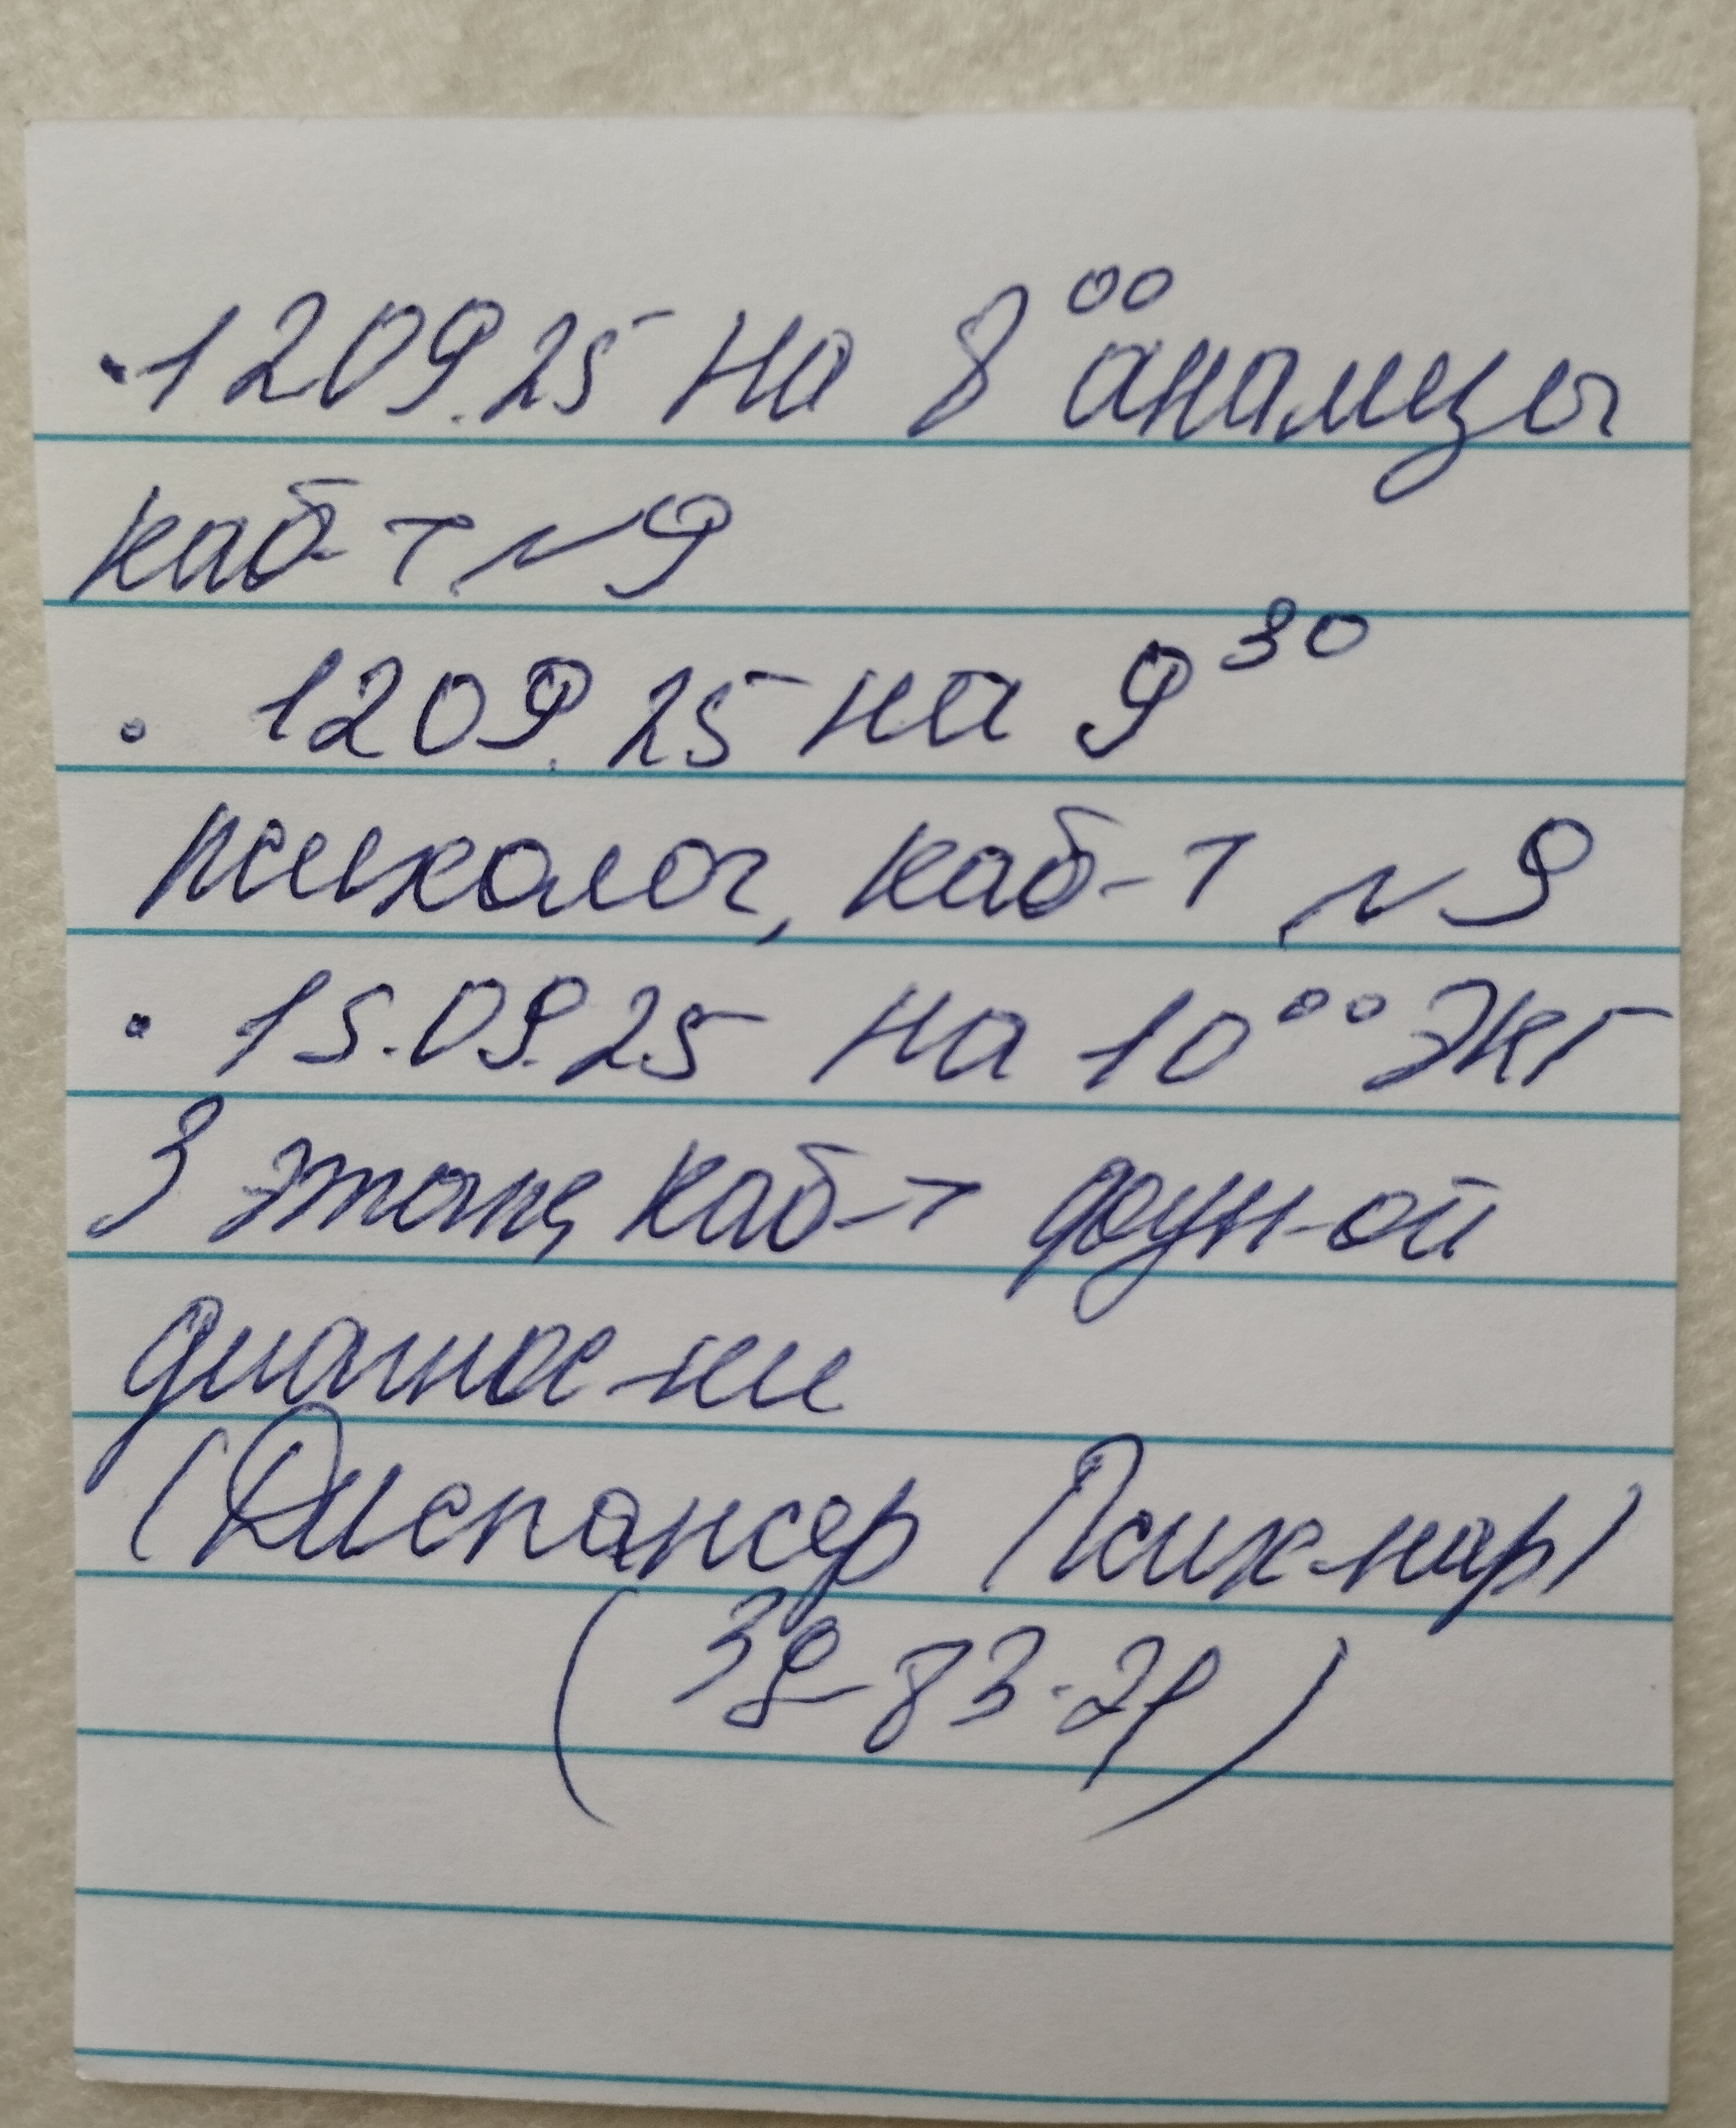 · 1209.25 на 8⁰⁰ анализы
каб-т №9
· 1209.25 на 9³⁰
психолог, каб-т №9
· 15.09.25 на 10⁰⁰ ЭКГ
3 этаж, каб-т фун-ой
диагнос-ки
(Диспансер Псих-нар)
(39-83-21)